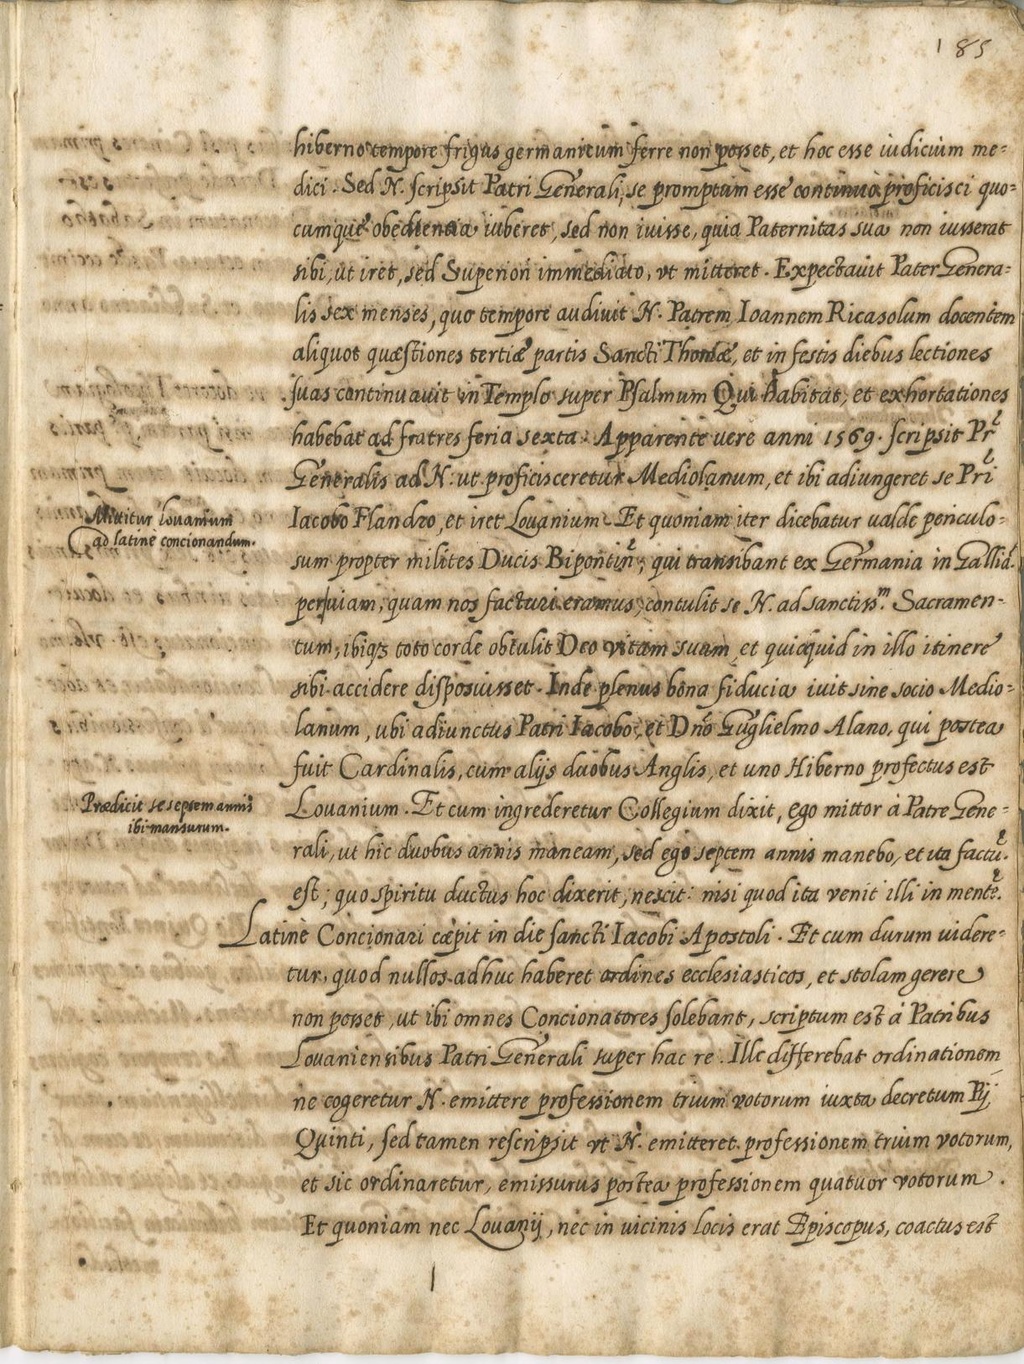 185
hiberno tempore frigus germanicum ferre non posset, et hoc esse iudicium me=
dici. Sed N. scripsit Patri Generali, se promptum esse continuò proficisci quo=
cumque obedientia iuberet, sed non iuisse, quia Paternitas sua non iusserat
sibi, ut iret, sed Superiori immediato, vt mitteret. Expectauit Pater Genera=
lis sex menses, quo tempore audiuit N. Patrem Ioannem Ricasolum docentem
aliquot quæstiones tertiæ partis Sancti Thomæ, et in festis diebus lectiones
suas continuauit in Templo super Psalmum Qui habitat, et exhortationes
habebat ad fratres feria sexta. Apparente uere anni 1569. scripsit Pr
Generalis ad N. ut proficisceretur Mediolanum, et ibi adiungeret se Pri
Mittitur Louanium
ad latinè concionandum.
Iacobo Flandro, et iret Louanium. Et quoniam iter dicebatur ualde periculo=
sum propter milites Ducis Bipontin, qui transibant ex Germania in Gallia
per uiam, quam nos facturi eramus, contulit se N. ad sanctissm. Sacramen-
tum, ibiqz toto corde obtulit Deo vitam suam, et quicquid in illo itinere
sibi accidere disposuisset. Inde plenus bona fiducia iuit sine socio Medio=
lanum, ubi adiunctus Patri Iacobo, et Dno Guglielmo Alano, qui postea
fuit Cardinalis, cum alijs duobus Anglis, et uno Hiberno profectus est
Prædicit se septem annis
ibi mansurum.
Louanium. Et cum ingrederetur Collegium dixit, ego mittor à Patre Gene=
rali, ut hic duobus annis maneam, sed ego septem annis manebo, et ita factu.
est; quo spiritu ductus hoc dixerit, nescit: nisi quod ita venit illi in mente.
Latinè Concionari cæpit in die sancti Iacobi Apostoli. Et cum durum uidere=
tur, quod nullos adhuc haberet ordines ecclesiasticos, et stolam gerere
non posset, ut ibi omnes Concionatores solebant, scriptum est à Patribus
Louaniensibus Patri Generali super hac re. Ille differebat ordinationem
ne cogeretur N. emittere professionem trium votorum iuxta decretum Pij
Quinti, sed tamen rescripsit vt N. emitteret professionem trium votorum,
et sic ordinaretur, emissurus postea professionem quatuor votorum.
Et quoniam nec Louanij, nec in uicinis locis erat Episcopus, coactus est